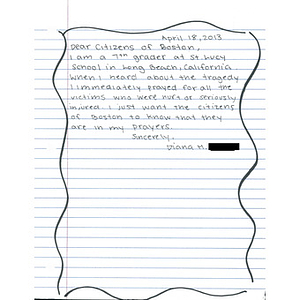 April 18, 2013
Dear Citizens of Boston,
I am a 7th grader at St. Lucy
School in Long Beach, California.
When I heard about the tragedy
I immediately prayed for all the
victims who were hurt or seriously
injured. I just want the citizens
of Boston to know that they
are in my prayers.
Sincerely,
Diana M.